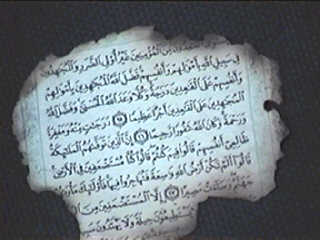 مِنَ الْمُؤْمِنِينَ غَيْرُ أُولِي الضَّرَرِ وَالْمُجَٰهِدُونَ
فِي سَبِيلِ اللَّهِ بِأَمْوَٰلِهِمْ وَأَنفُسِهِمْ فَضَّلَ اللَّهُ الْمُجَٰهِدِينَ بِأَمْوَٰلِهِمْ
وَأَنفُسِهِمْ عَلَى الْقَٰعِدِينَ دَرَجَةً وَكُلًّا وَعَدَ اللَّهُ الْحُسْنَىٰ وَفَضَّلَ اللَّهُ
الْمُجَٰهِدِينَ عَلَى الْقَٰعِدِينَ أَجْرًا عَظِيمًا ۝٩٥ دَرَجَٰتٍ مِّنْهُ وَمَغْفِرَةً
وَرَحْمَةً وَكَانَ اللَّهُ غَفُورًا رَّحِيمًا ۝٩٦ إِنَّ الَّذِينَ تَوَفَّىٰهُمُ الْمَلَٰٓئِكَةُ
ظَالِمِي أَنفُسِهِمْ قَالُوا فِيمَ كُنتُمْ قَالُوا كُنَّا مُسْتَضْعَفِينَ فِي الْأَرْضِ
قَالُوا أَلَمْ تَكُنْ أَرْضُ اللَّهِ وَٰسِعَةً فَتُهَاجِرُوا فِيهَا فَأُولَٰٓئِكَ
جَهَنَّمُ وَسَآءَتْ مَصِيرًا ۝٩٧ إِلَّا الْمُسْتَضْعَفِينَ مِنَ
يَسْتَطِيعُونَ حِيلَةً وَلَا يَهْتَدُونَ